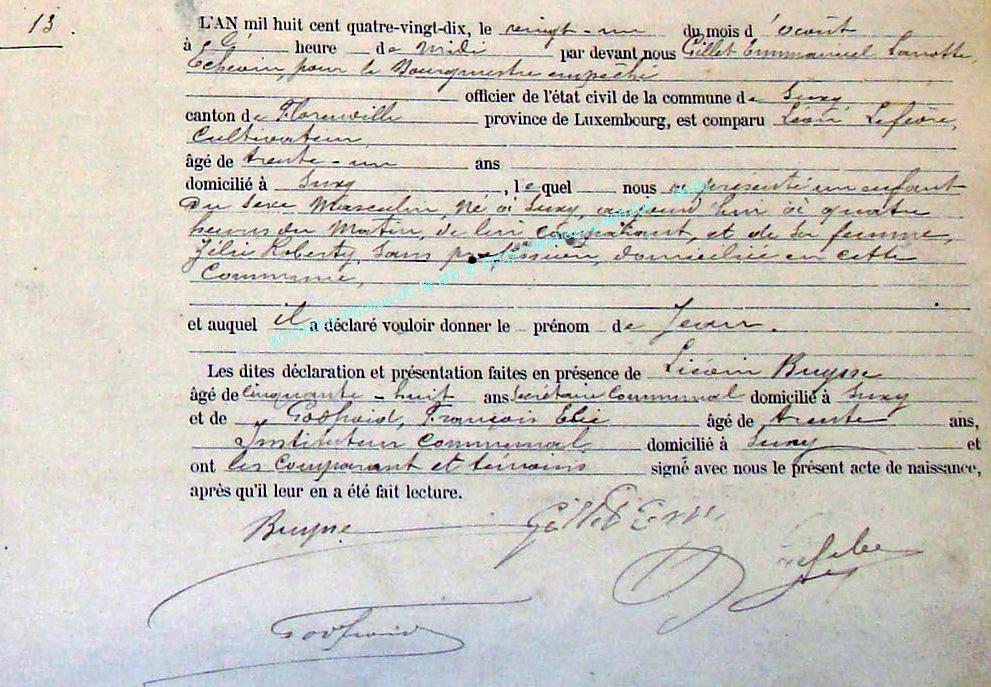 13.
L'AN mil huit cent quatre-vingt-dix, le vingt-un du mois d'août
à heure de Midi par devant nous Gillet Emmanuel
Echevin, pour le Bourgmestre empêché
officier de l'état civil de la commune de Suxy,
canton de Florenville province de Luxembourg, est comparu Léon Lefèvre,
Cultivateur,
âgé de trente-un ans
domicilié à Suxy, lequel nous a présenté un enfant
du sexe Masculin, né à Suxy, aujourd'hui à quatre
heures du Matin, de lui comparant, et de sa femme,
Zélie Roberty, sans profession, domiciliée en cette
Commune,
et auquel il a déclaré vouloir donner le prénom de Jean.
Les dites déclaration et présentation faites en présence de Buysse
âgé de cinquante-huit ans Secrétaire Communal domicilié à Suxy
et de Godfroid, François Elie âgé de trente ans,
Instituteur Communal domicilié à Suxy et
ont les Comparant et témoins signé avec nous le présent acte de naissance,
après qu'il leur en a été fait lecture.
Buysse Gillet Em.
Godfroid